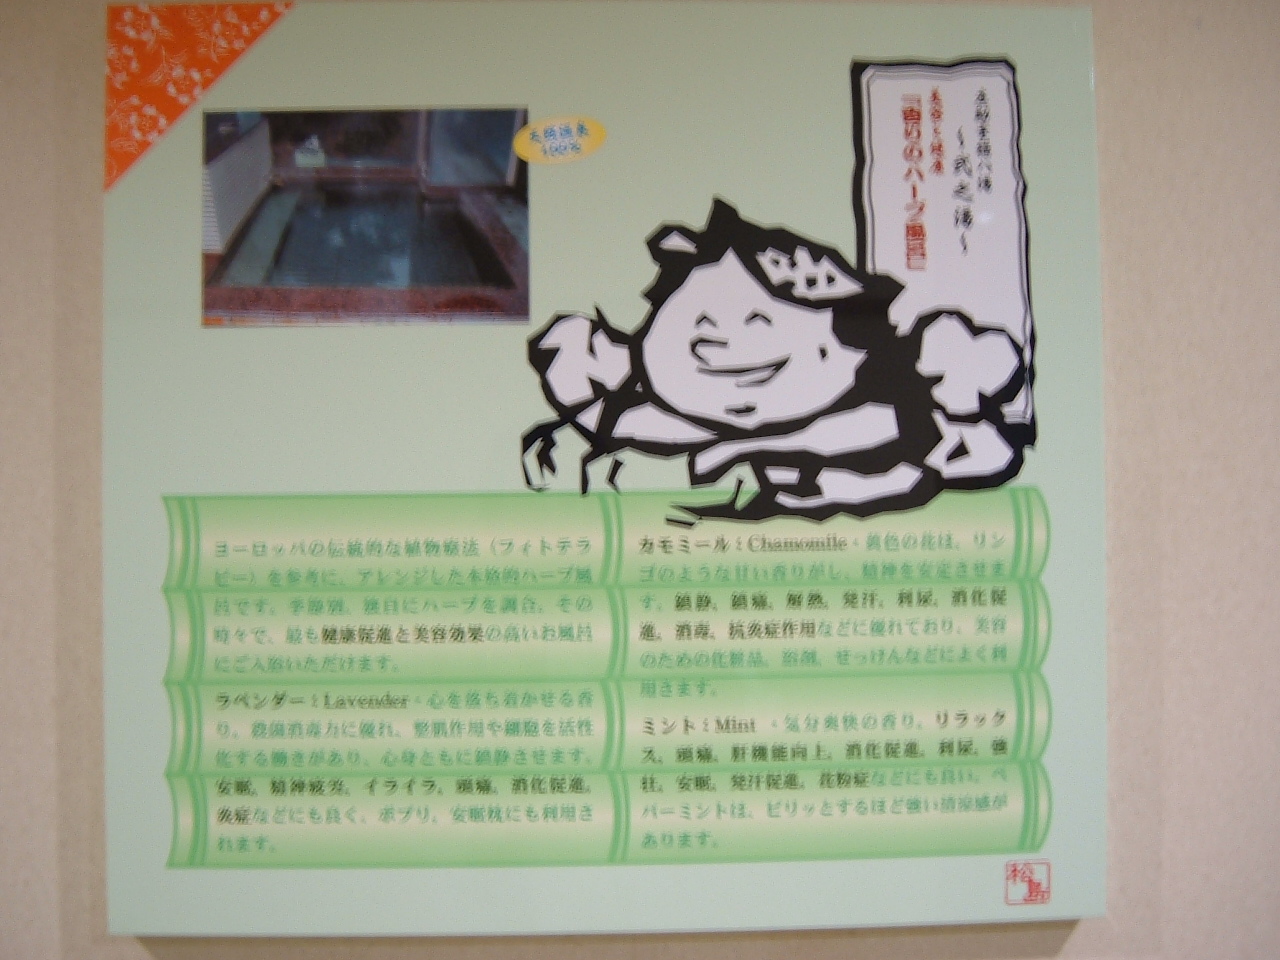 天然温泉
100%
～弐之湯～
美容と健康
『香りのハーブ風呂』
ヨーロッパの伝統的な植物療法（フィトテラ
ピー）を参考に、アレンジした本格的ハーブ風
呂です。季節別、独自にハーブを調合、その
時々で、最も健康促進と美容効果の高いお風呂
にご入浴いただけます。
ラベンダー：Lavender・心を落ち着かせる香
り。殺菌消毒力に優れ、整肌作用や細胞を活性
化する働きがあり、心身ともに鎮静させます。
安眠、精神疲労、イライラ、頭痛、消化促進、
炎症などにも良く、ポプリ、安眠枕にも利用さ
れます。
カモミール：Chamomile・黄色の花は、リン
ゴのような甘い香りがし、精神を安定させま
す。鎮静、鎮痛、解熱、発汗、利尿、消化促
進、消毒、抗炎症作用などに優れており、美容
のための化粧品、浴剤、せっけんなどによく利
用さます。
ミント：Mint ・気分爽快の香り。リラック
ス、頭痛、肝機能向上、消化促進、利尿、強
壮、安眠、発汗促進、花粉症などにも良い。ペ
パーミントは、ピリッとするほど強い清涼感が
あります。
松島